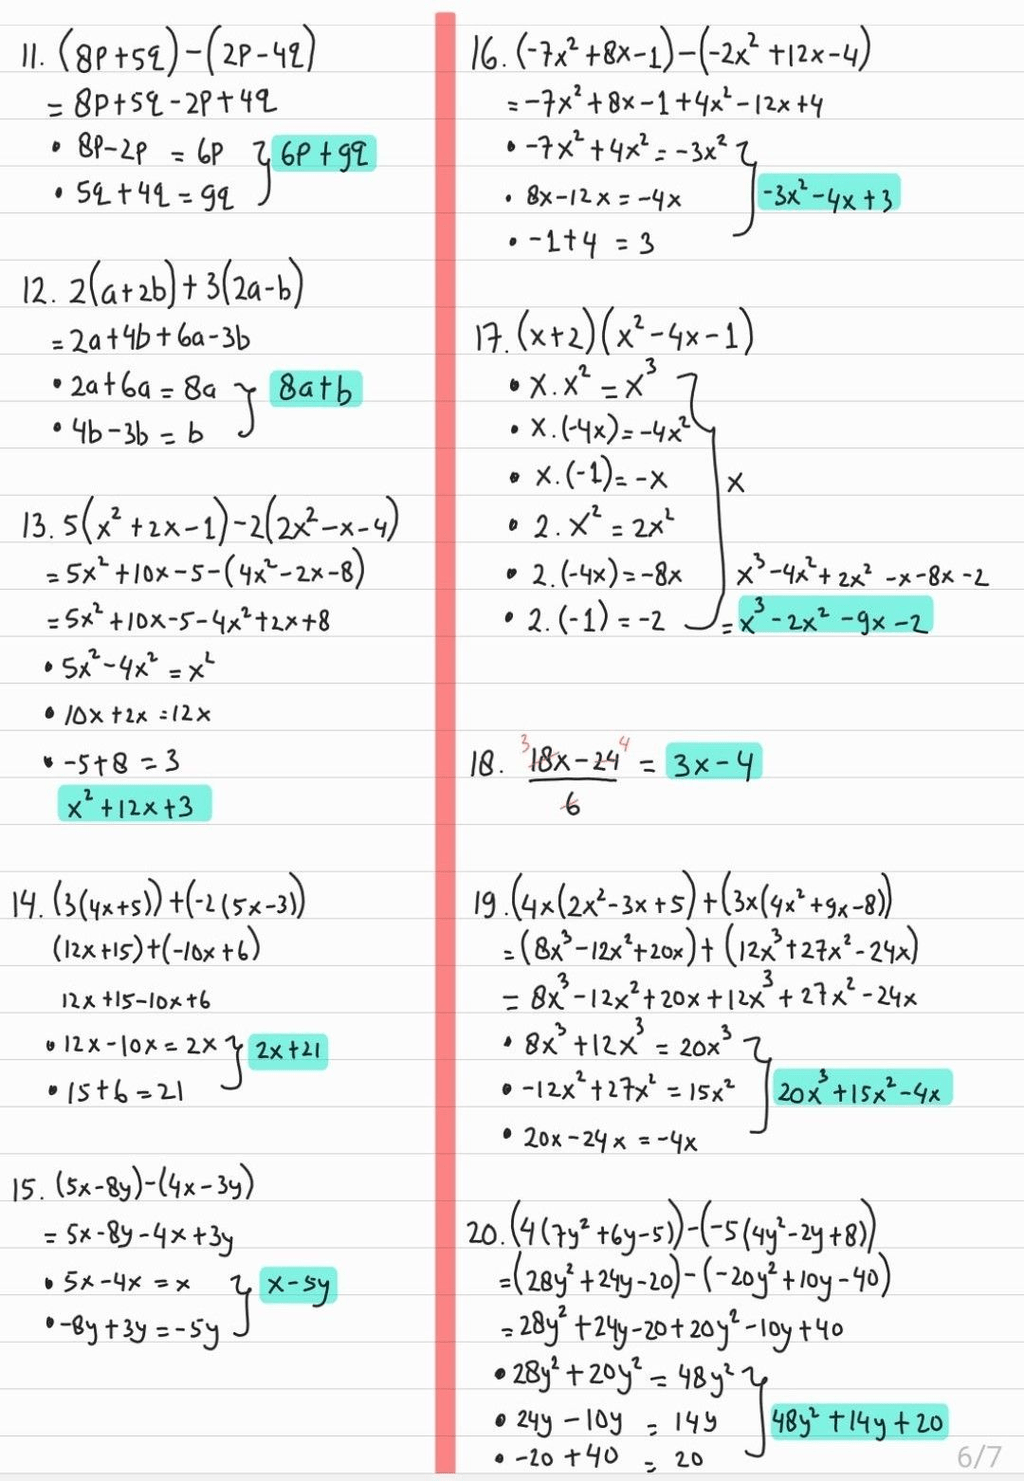 11. (8p+5q)-(2p-4q)
= 8p+5q-2p+4q
• 8p-2p = 6p } 6p+9q
• 5q+4q = 9q
12. 2(a+2b)+3(2a-b)
= 2a+4b+6a-3b
• 2a+6a = 8a } 8a+b
• 4b-3b = b
13. 5(x²+2x-1)-2(2x²-x-4)
= 5x²+10x-5-(4x²-2x-8)
= 5x²+10x-5-4x²+2x+8
• 5x²-4x² = x²
• 10x+2x = 12x
• -5+8 = 3
x²+12x+3
14. (3(4x+5))+(-2(5x-3))
(12x+15)+(-10x+6)
12x+15-10x+6
• 12x-10x = 2x } 2x+21
• 15+6 = 21
15. (5x-8y)-(4x-3y)
= 5x-8y-4x+3y
• 5x-4x = x } x-5y
• -8y+3y = -5y
16. (-7x²+8x-1)-(-2x²+12x-4)
= -7x²+8x-1+4x²-12x+4
• -7x²+4x² = -3x²
• 8x-12x = -4x } -3x²-4x+3
• -1+4 = 3
17. (x+2)(x²-4x-1)
• x.x² = x³
• x.(-4x) = -4x²
• x.(-1) = -x } x
• 2.x² = 2x²
• 2.(-4x) = -8x x³-4x²+2x²-x-8x-2
• 2.(-1) = -2 = x³-2x²-9x-2
3 4
18. 18x-24 = 3x-4
6
19. (4x(2x²-3x+5)+(3x(4x²+9x-8))
= (8x³-12x²+20x)+(12x³+27x²-24x)
= 8x³-12x²+20x+12x³+27x²-24x
• 8x³+12x³ = 20x³
• -12x²+27x² = 15x² } 20x³+15x²-4x
• 20x-24x = -4x
20. (4(7y²+6y-5))-(-5(4y²-2y+8))
= (28y²+24y-20)-(-20y²+10y-40)
= 28y²+24y-20+20y²-10y+40
• 28y²+20y² = 48y²
• 24y-10y = 14y } 48y²+14y+20
• -20+40 = 20
6/7